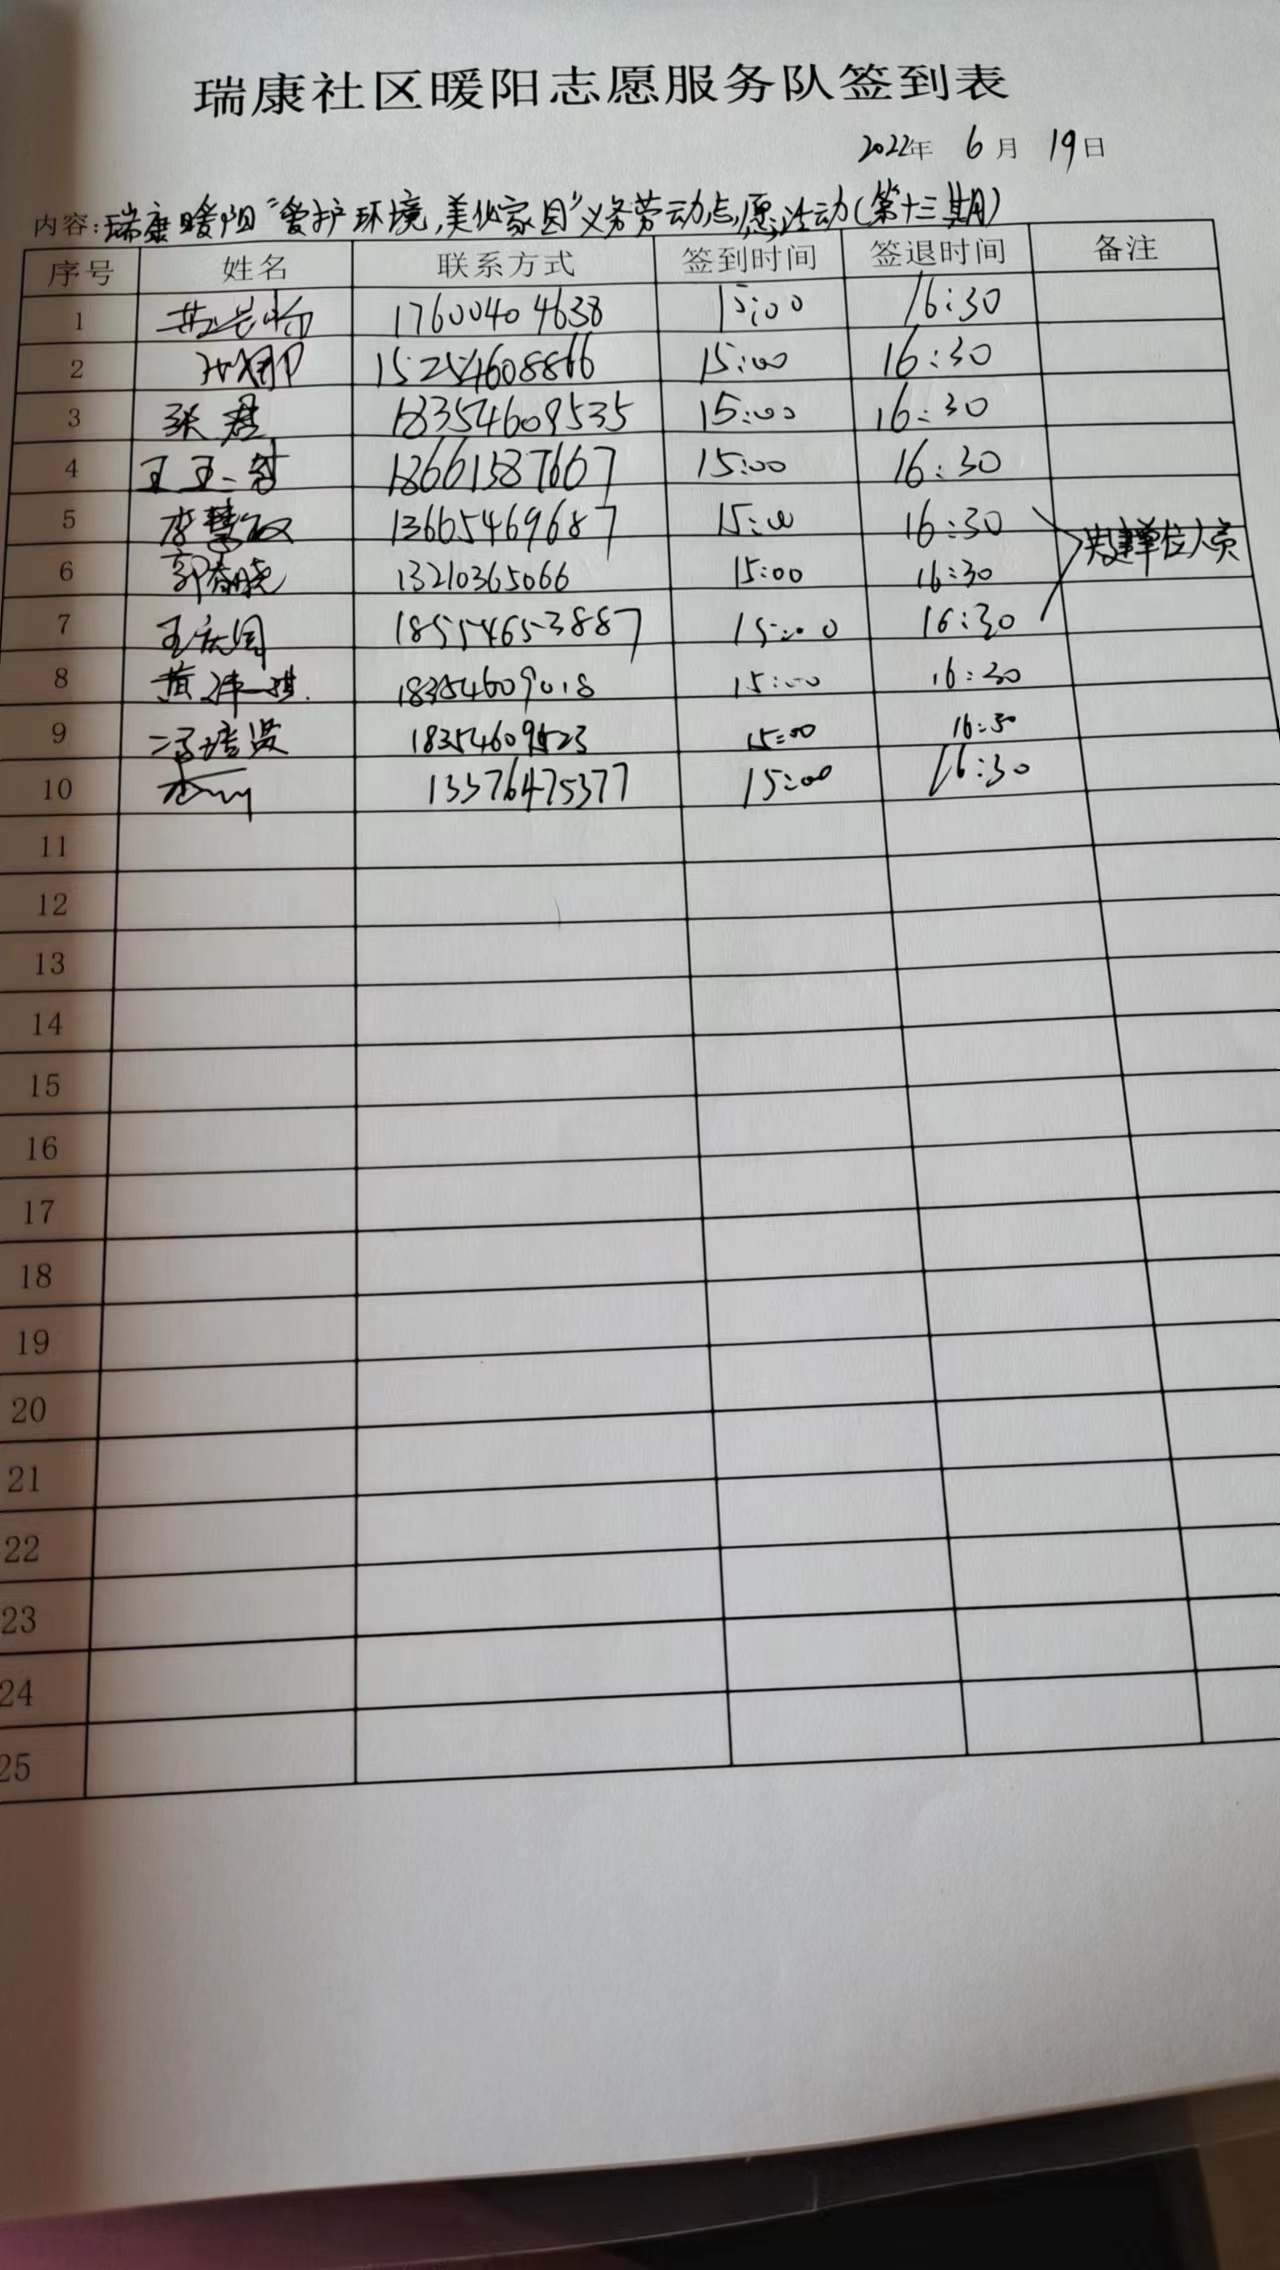 瑞康社区暖阳志愿服务队签到表
2022年 6月 19日
内容:瑞康暖阳“爱护环境,美化家园”义务劳动志愿活动(第十三期)
序号 姓名 联系方式 签到时间 签退时间 备注
1 17600404638 15:00 16:30
2 15254608866 15:00 16:30
3 张君 18354609535 15:00 16:30
4 18661387667 15:00 16:30
5 李慧敏 13665469687 15:00 16:30 共建单位人员
6 郭春晓 13210365066 15:00 16:30
7 王庆国 18554653887 15:00 16:30
8 黄 18354609018 15:00 16:30
9 冯培贤 18354609523 15:00 16:30
10 13376475377 15:00 16:30
11
12
13
14
15
16
17
18
19
20
21
22
23
24
25